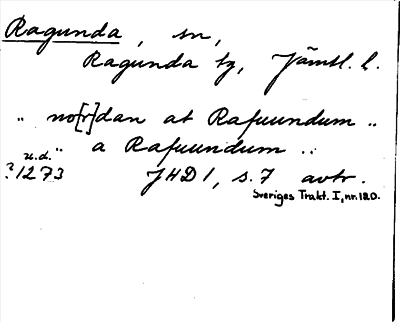 Ragunda, sn,
Ragunda tg, Jämtl. l.
„ no[r]dan at Rafuundum ..
u.d. „ a Rafuundum ..
?1273 JHD 1, s. 7 avtr.
Sveriges Trakt. I, nr. 120.